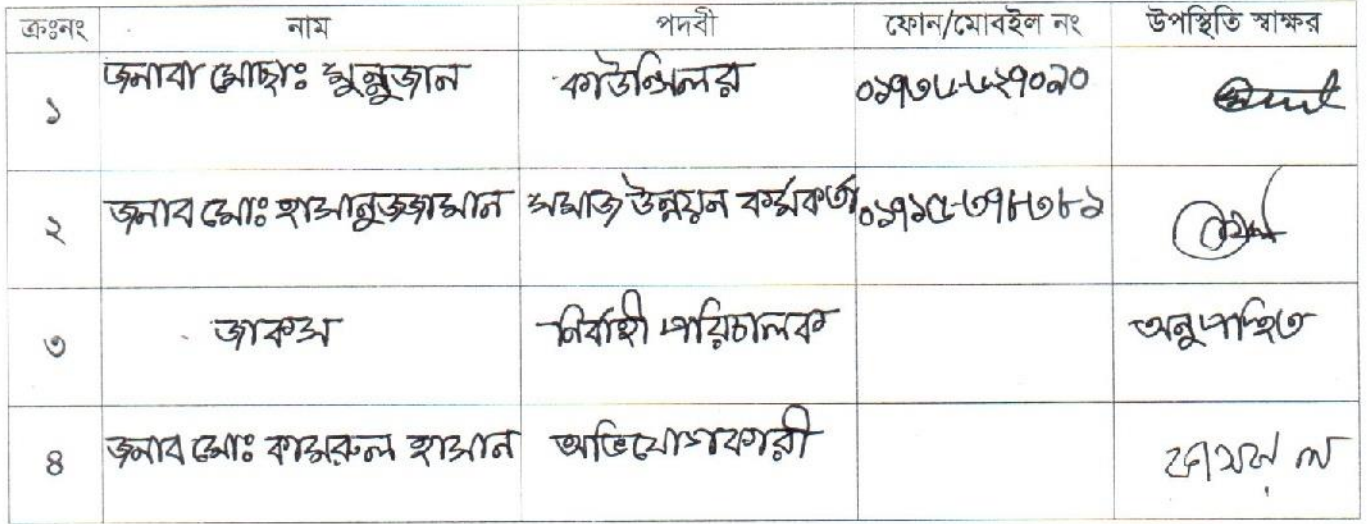 ক্রঃনং নাম পদবী ফোন/মোবইল নং উপস্থিতি স্বাক্ষর
১ জনাবা মোছাঃ মুনুজান কাউন্সিলর
২ জনাব মোঃ হাসানুজ্জামান সমাজ উন্নয়ন কর্মকর্তা ০১৭১৫-৩৭৮৩৮১
৩ জাকস নির্বাহী পরিচালক অনুপস্থিত
৪ জনাব মোঃ কামরুল হাসান অভিযোগকারী